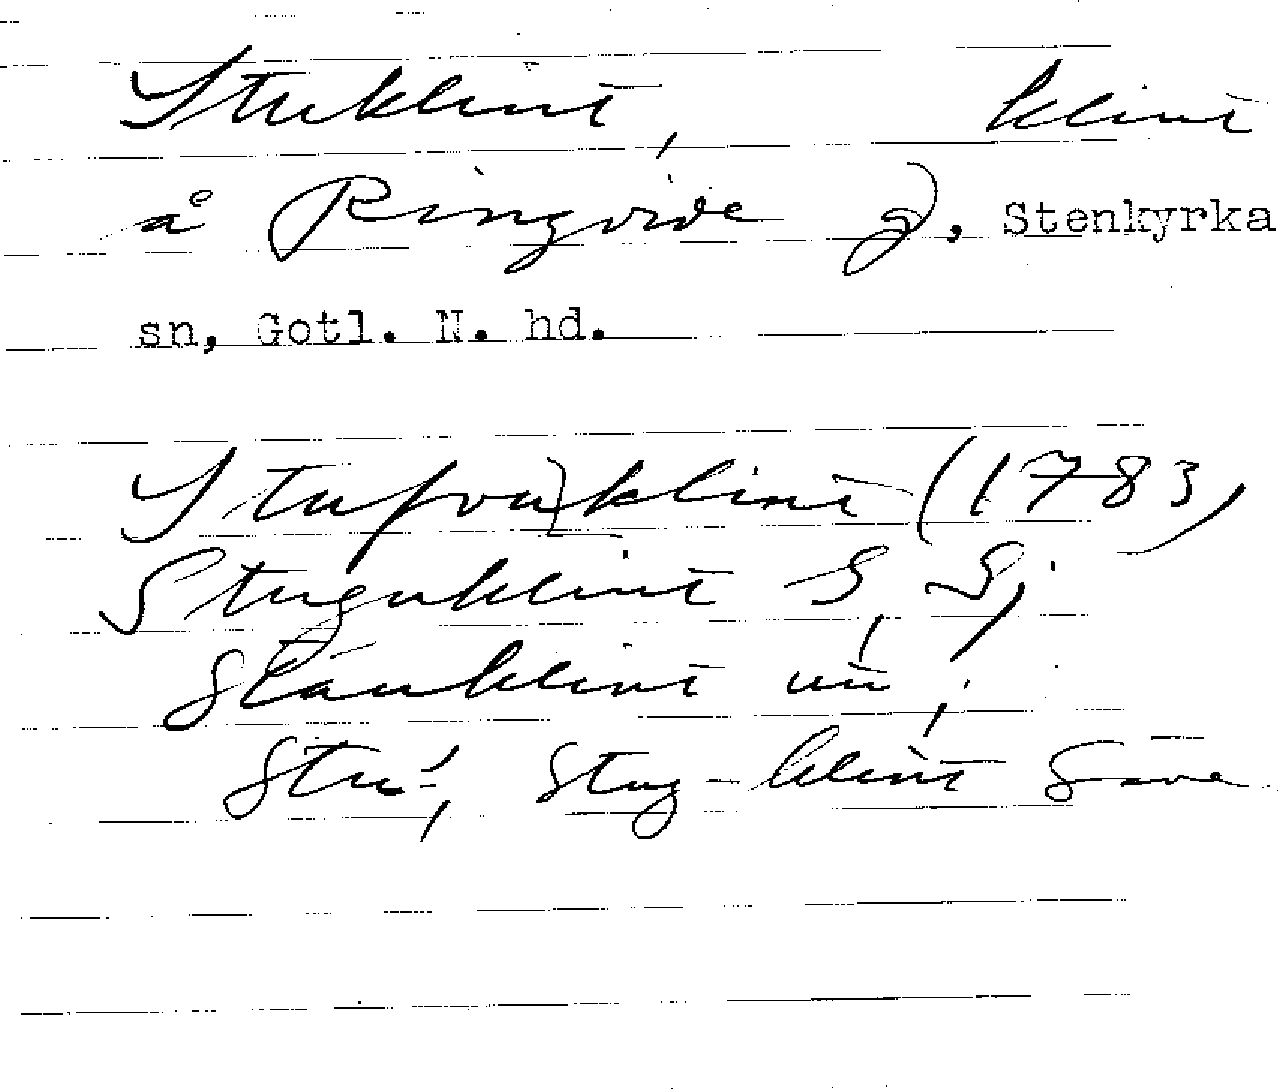 Stuklint, klint
å Ringvide g), Stenkyrka
sn, Gotl. N. hd.
Stufvuklint (1783,
Stuguklint S S;
Stäuklint
Stu-, Stug-klint Säve